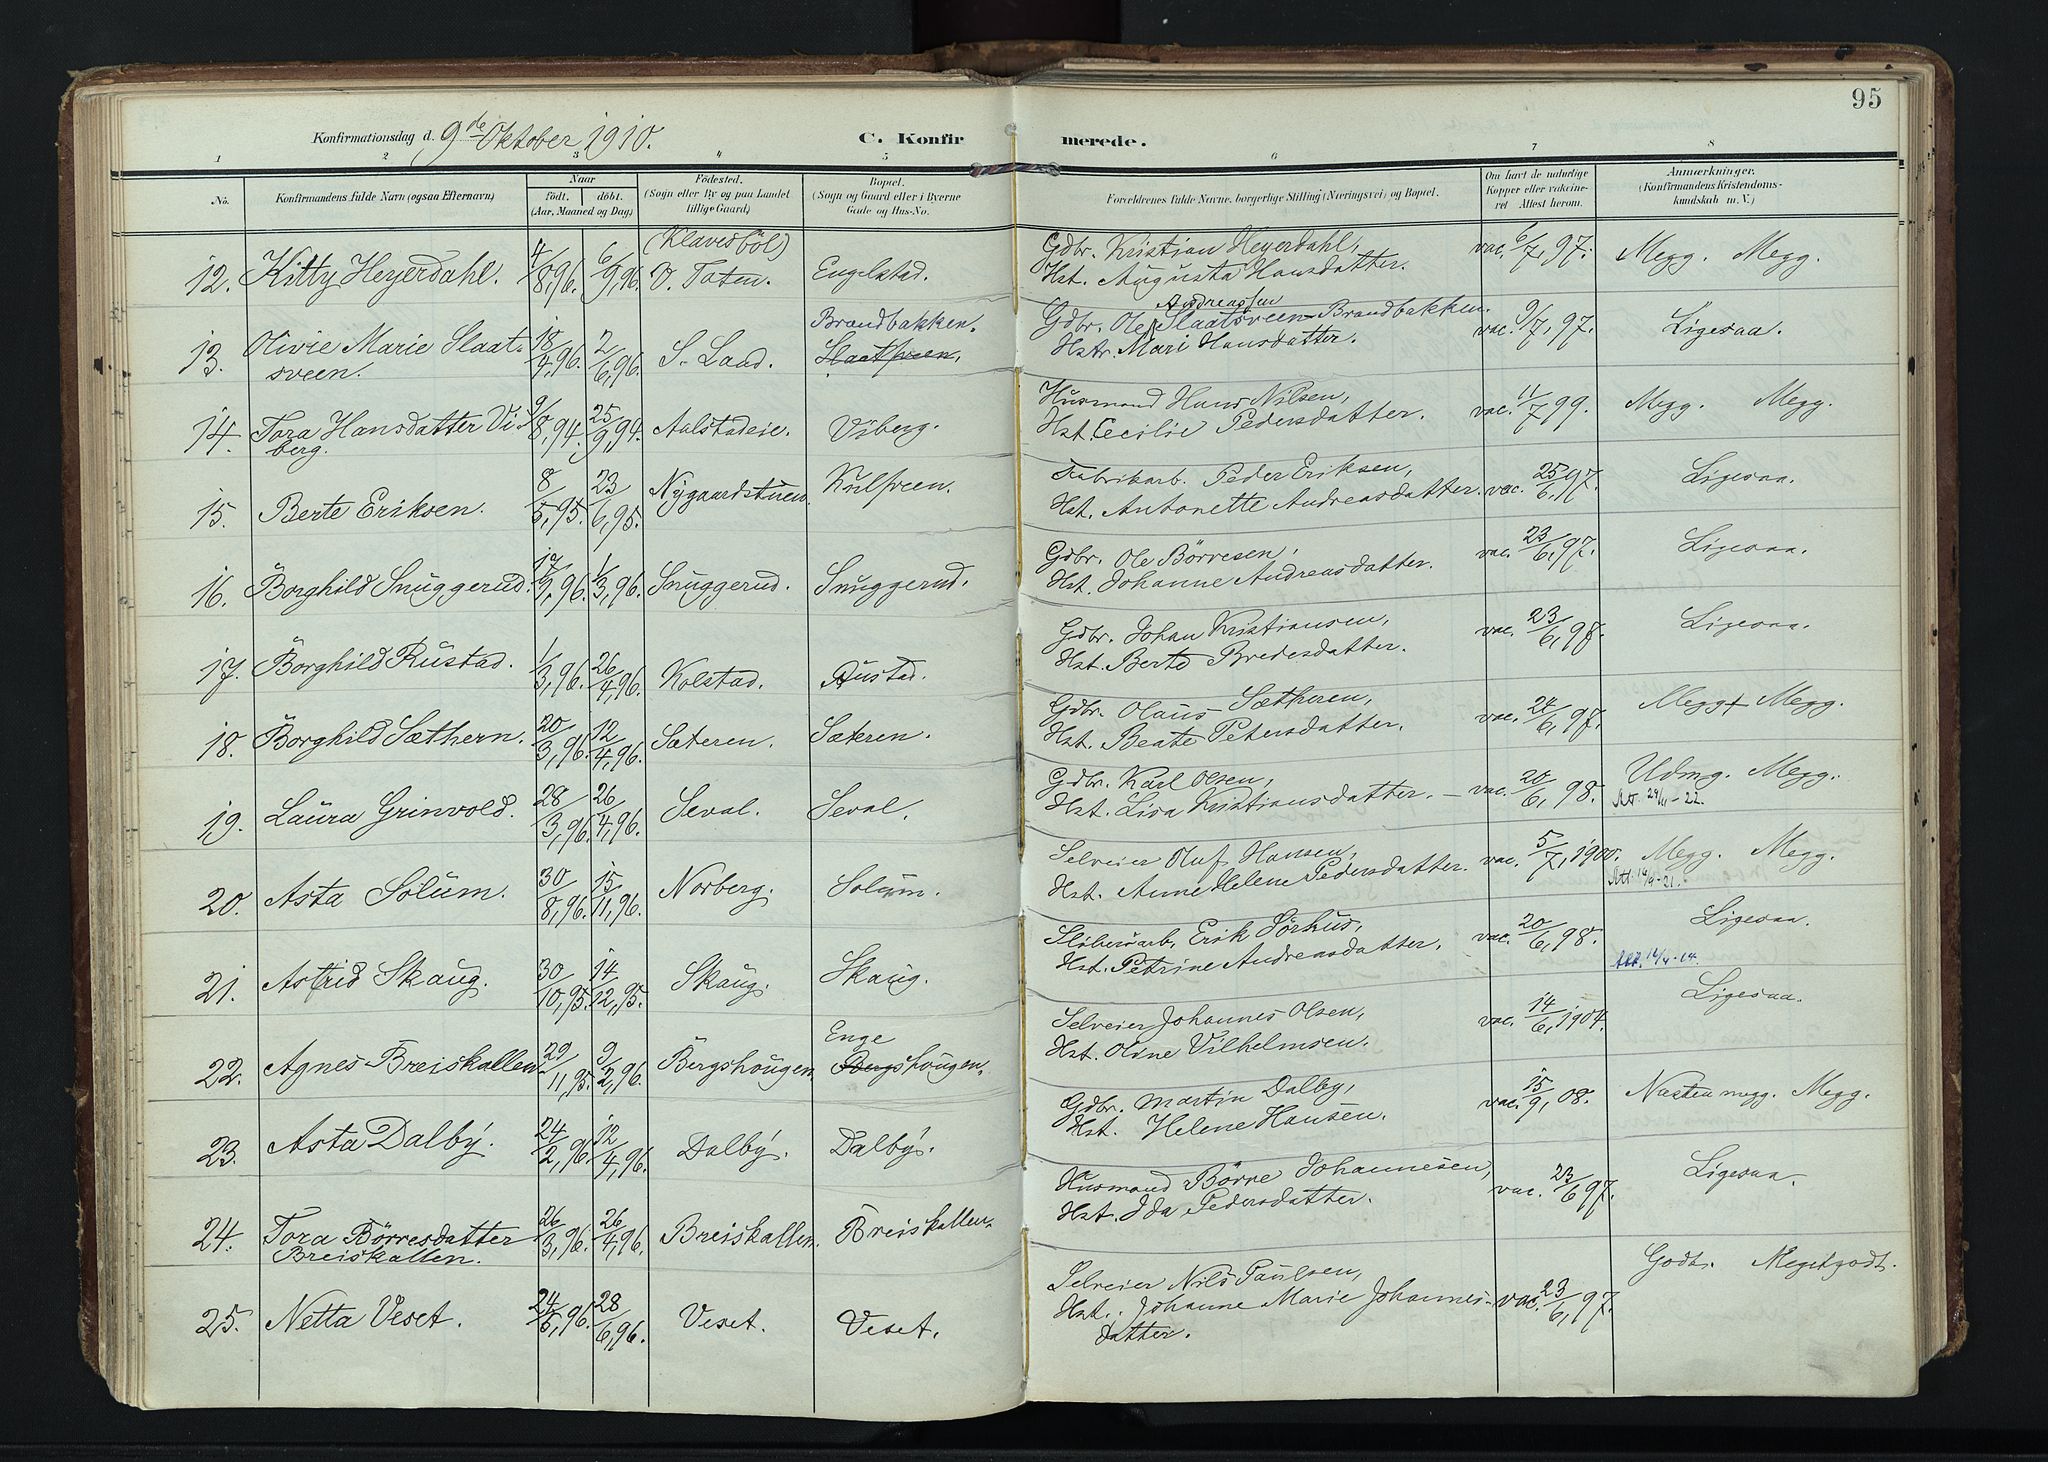 95
Konfirmationsdag d. 9de Oktober 1910. C. Konfirmerede.
1 2 3 4 5 6 7 8
No. Konfirmandens fulde Navn (ogsaa Efternavn) Naar født. døbt. (Aar, Maaned og Dag) Fødested. (Sogn eller By og paa Landet tillige Gaard) Bopæl. (Sogn og Gaard eller i Byerne Gade og Hus-No. Forældrenes fulde Navne, borgerlige Stilling (Næringsvei) og Bopæl. Om havt de naturlige Kopper eller vaccineret Attest herom. Anmærkninger. (Konfirmandens Kristendomskundskab m. V.)
12. Kitty Heyerdahl. 4/8, 96. 6/9, 96. (Klavesböl) V. Toten. Engelstad. Gdbr. Kristian Heyerdahl, vac. 6/7, 97. Megg. Megg.
Hst. Augusta Hansdatter.
13. Olivie Marie Slaatsveen. 18/4, 96. 2/6, 96. S. Land. Brandbakken. Slaatsveen. Gdbr. Ole Andreassen Slaatsveen Brandbakken. vac. 9/7, 97. Ligesaa.
Hstr. Mari Hansdatter.
14. Tora Hansdatter Viberg. 9/8, 94. 25/9, 94. Aalstadeie. Viberg. Husmand Hans Nilsen, vac. 11/7, 99. Megg. Megg.
Hst. Cecilie Pedersdatter.
15. Berte Eriksen. 8/5, 95. 23/6, 95. Nygaardstuen. Kulsveen. Fabrikarb. Peder Eriksen, vac. 25/6, 97. Ligesaa.
Hst. Antonette Andreasdatter.
16. Borghild Snuggerud. 1/3, 96. Snuggerud. Snuggerud. Gdbr. Ole Börresen, vac. 23/6, 97. Ligesaa.
Hst. Johanne Andreasdatter.
17. Borghild Rustad. 1/3, 96. 26/4, 96. Kolstad. Rustad. Gdbr. Johan Kristiansen, vac. 23/6, 98. Ligesaa.
Hst. Berte Bredesdatter.
18. Borghild Sæthern. 20/3, 96. 12/4, 96. Sæteren. Sæteren. Gdbr. Olaus Sætheren, vac. 24/6, 97. Megg+ Megg.
Hst. Beate Petersdatter.
19. Laura Grinvold. 28/3, 96. 26/4, 96. Seval. Seval. Gdbr. Karl Olsen, vac. 20/6, 98. Udmg. Megg.
Hst. Lisa Kristiansdatter. Att. 29/11-22.
20. Asta Solum. 30/8, 96. 15/11, 96. Norberg. Solum. Selveier Oluf Hansen, vac. 5/7, 1900. Megg. Megg.
Hst. Anne Helene Pedersdatter. Att. 14/9-21.
21. Astrid Skaug. 30/10, 95. 14/12, 95. Skaug. Skaug. Sliberiarb. Erik Sörhus, vac. 20/6, 98. Ligesaa.
Hst. Petrine Andreasdatter.
22. Agnes Breiskallen. 29/11, 95. 9/2, 96. Bergshougen. Enge Bergshougen. Selveier Johannes Olsen, vac. 14/6, 1904. Ligesaa.
Hst. Oline Vilhelmsen.
23. Asta Dalby. 24/2, 96. 12/4, 96. Dalby. Dalby. Gdbr. Martin Dalby, vac. 15/9, 08. Næsten megg. Megg.
Hst. Helene Hansen.
24. Tora Börresdatter Breiskallen. 26/3, 96. 26/4, 96. Breiskallen. Breiskallen. Husmand Börre Johannesen, vac. 23/6 97. Ligesaa.
Hst. Ida Pedersdatter.
25. Netta Veset. 24/5, 96. 28/6, 96. Veset. Veset. Selveier Nils Paulsen, vac. 23/6, 97. Godt. Megetgodt.
Hst. Johanne Marie Johannesdatter.